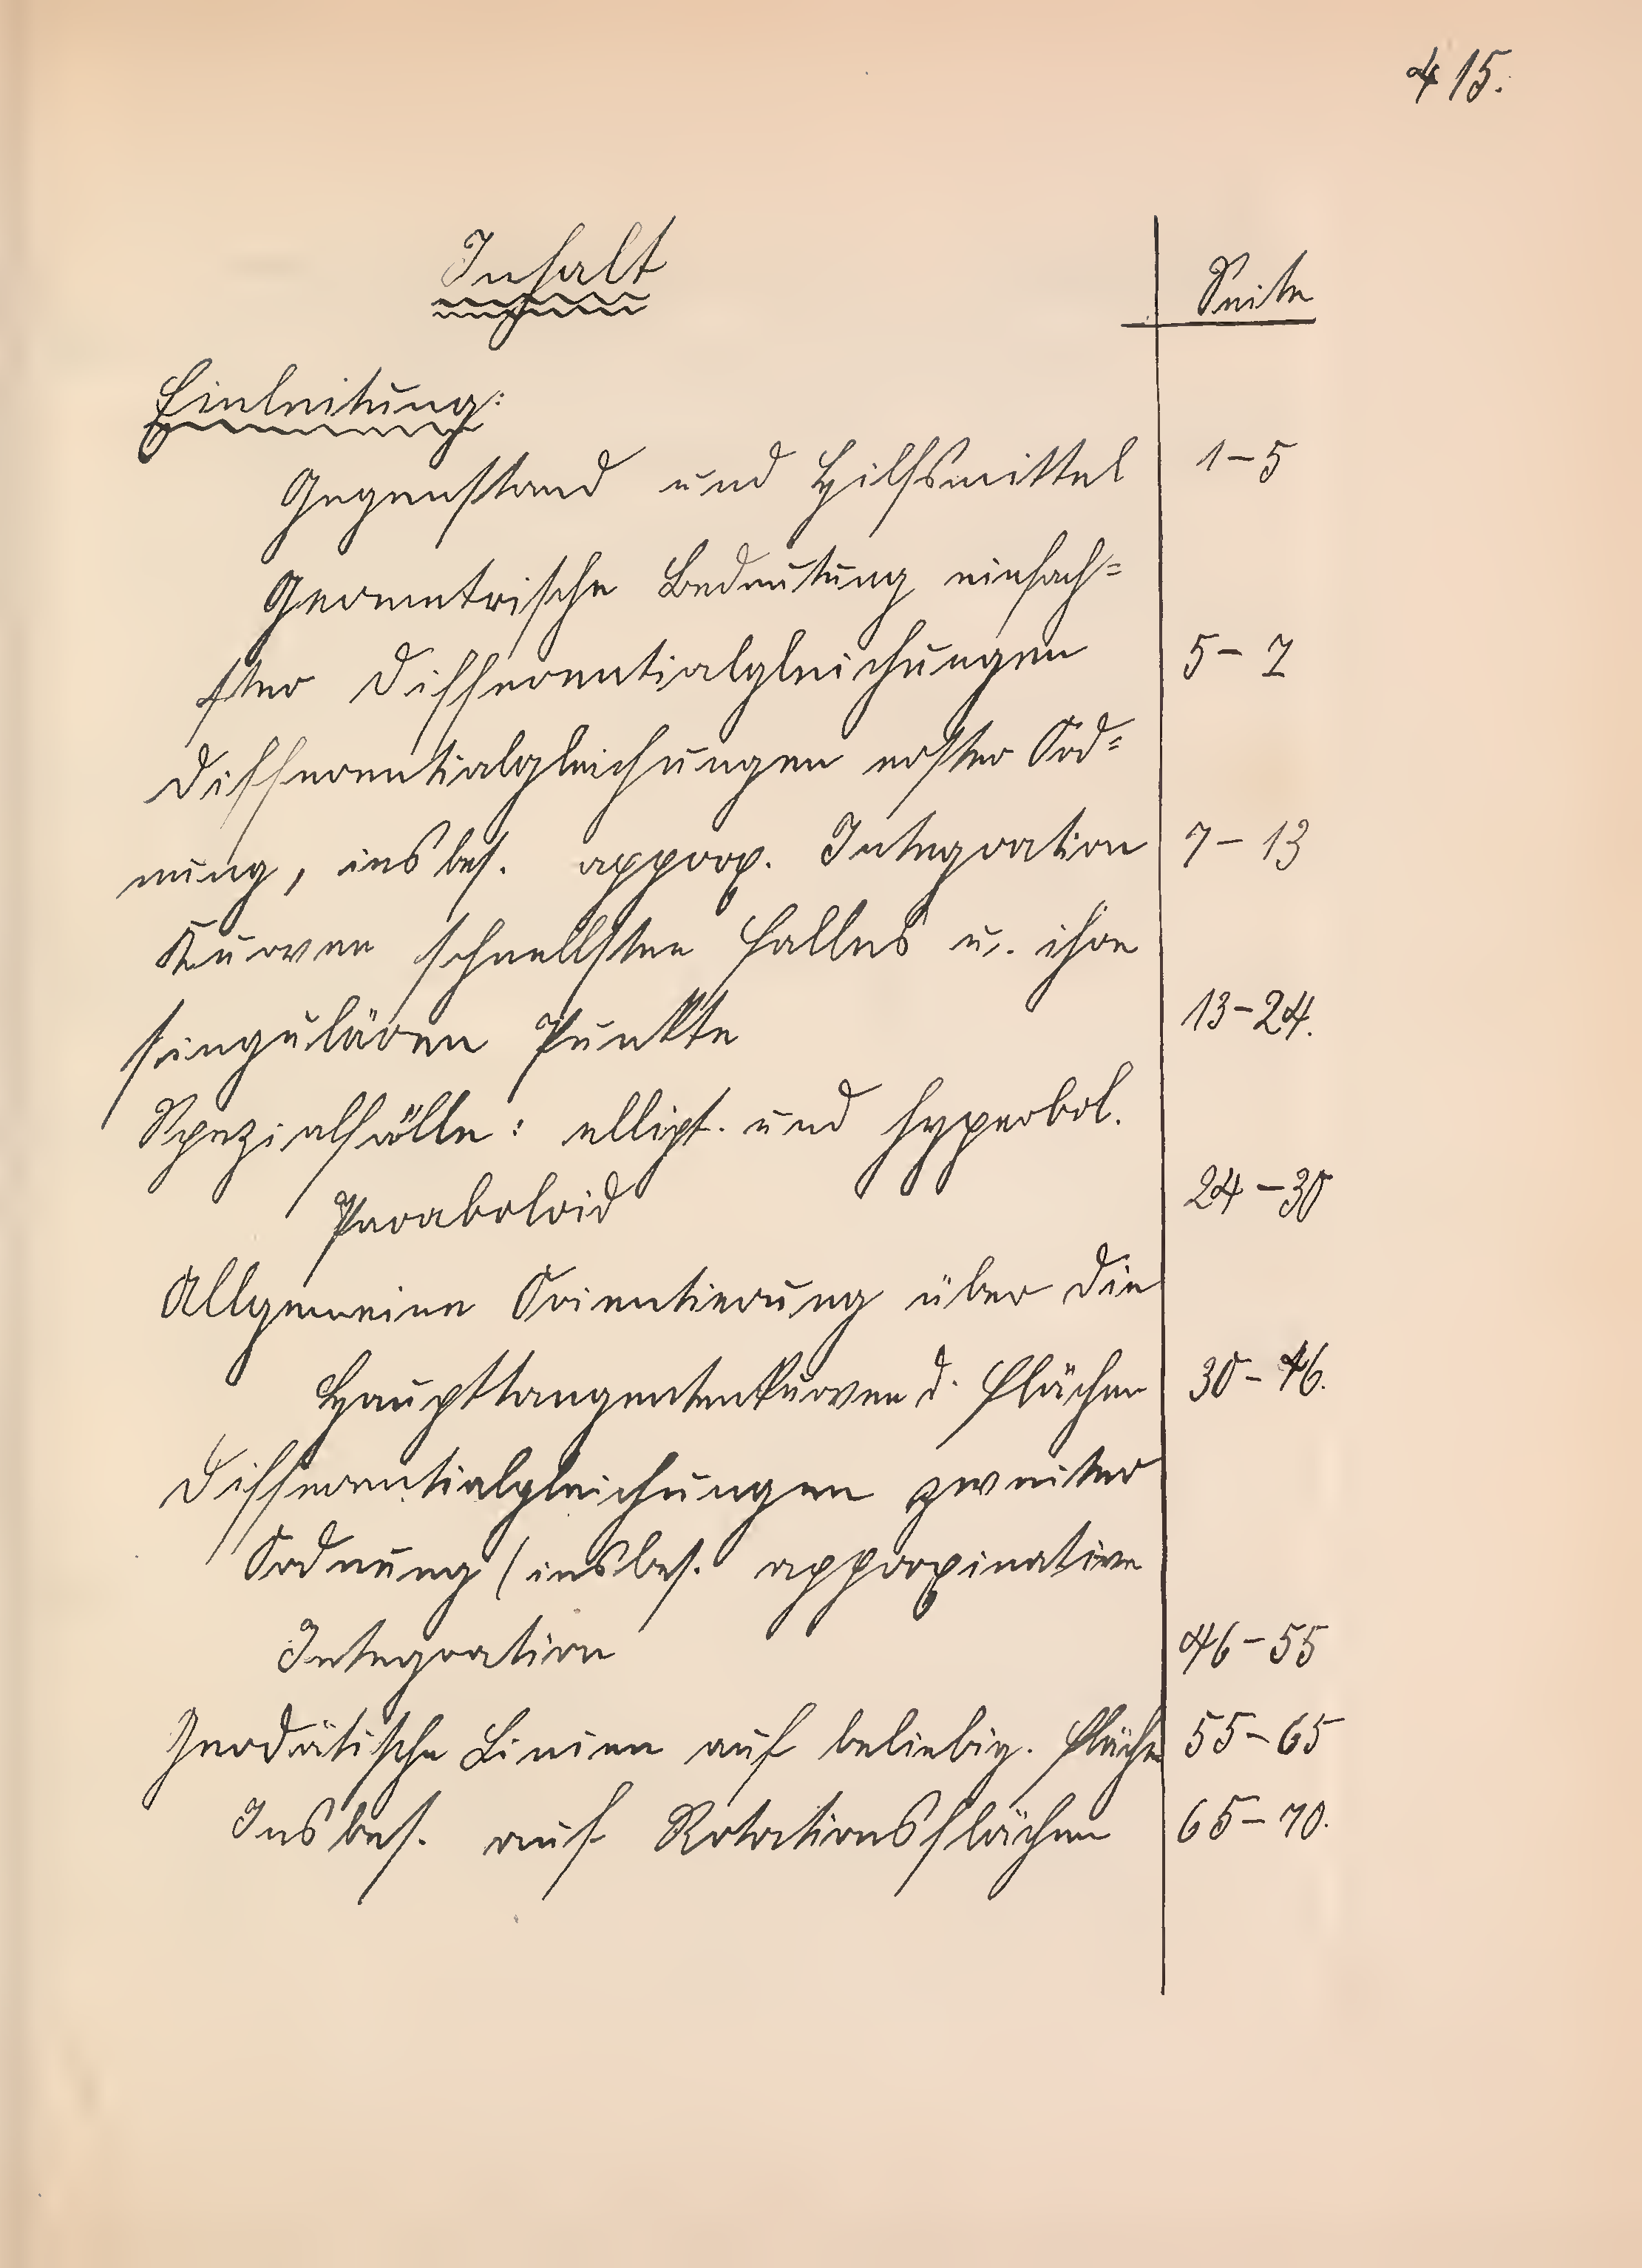 415.
Inhalt
Seite
Einleitung:
Gegenstand und Hilfsmittel 1-5
Geometrische Bedeutung einfach=
ster Differentialgleichungen 5-7
Differentialgleichungen erster Ord=
nung, insbes. approx. Integration 7-13
Kurven schnellsten Falles u. ihre
singulären Punkte 13-24.
Spezialfälle: ellipt. und hyperbol.
Paraboloid 24-30
Allgemeine Orientierung über die
Haupttangentenkurven d. Flächen 30-46.
Differentialgleichungen zweiter
Ordnung (insbes. approximative
Integration 46-55
Geodätische Linien auf beliebig. Fläche 55-65
Insbes. auf Rotationsflächen 65-70.